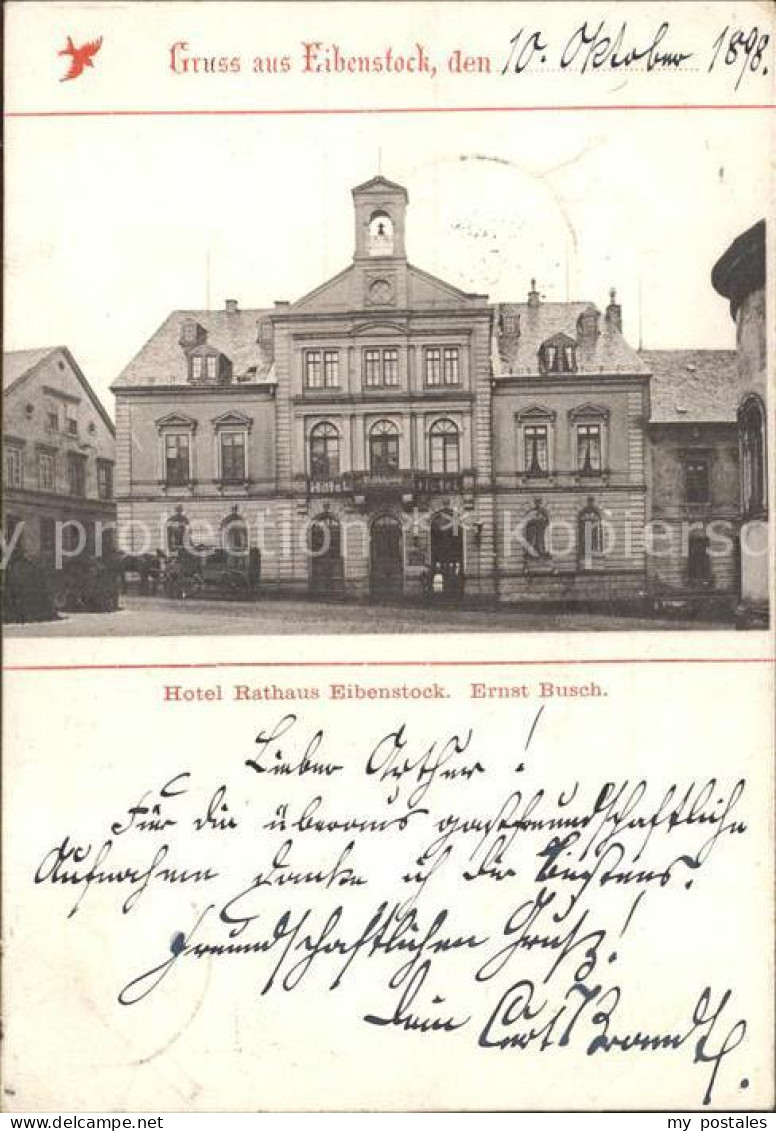 Gruss aus Eibenstock, den 10. Oktober 1898.
Hotel Hotel
* Protection * Kopierschutz *
Hotel Rathaus Eibenstock. Ernst Busch.
Lieber Arthur!
Für die überaus gastfreundschaftliche
Aufnahme danke ich dir bestens.
Freundschaftlichen Gruß!
Dein Carl Brandt.
my postales